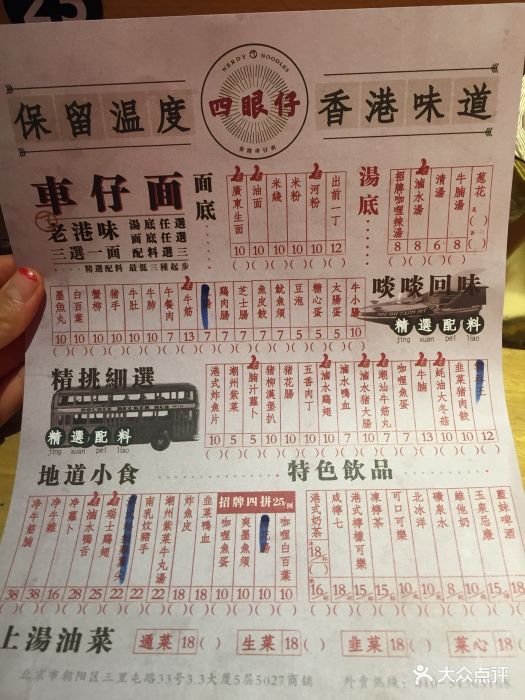 23
NERDY NOODLES
四眼仔
香港車仔麵
保留溫度
香港味道
車仔面
老港味
湯底任選
面底任選
三選一面配料三
精選配料 最低三種起步
面底
廣東生面 10
油面 10
米綫 10
米粉 10
河粉 10
出前一丁 12
湯底
招牌咖喱辣湯 8
滷水湯 8
清湯 6
牛腩湯 8
葱花
啖啖回味
精選配料
jing xuan pei liao
墨魚丸 10
百葉 10
蟹柳 10
豬手 10
牛肚 10
牛肺 10
午餐肉 7
牛筋 13
7
雞肉腸 7
芝士腸 7
魚皮餃 10
魷魚須 10
豆泡 5
糖心蛋 5
太陽蛋 5
牛小腸 10
精挑細選
精選配料
jing xuan pei liao
港式炸魚片 10
潮州紫菜 5
腩汁蘿卜 5
豬柳漢堡扒 10
豬花腸 10
五香肉丁 10
滷水雞翅 10
滷水鴨血 10
滷水豬大腸 10
汕头牛筋丸 7
咖喱魚蛋 7
牛腩 13
蚝油大冬菇 10
韭菜豬肉餃 10
12
地道小食
冷牛筋腩 38
冷牛雜 38
冷蘿卜 16
滷水鴨舌 28
瑞士雞翅 25
22
南乳炆豬手 22
潮州紫菜牛丸湯 22
炸魚皮 18
韭菜鴨血 18
招牌四拼25/例
咖喱魚蛋 10
爽墨魚須 10
10
咖喱白百葉 10
特色飲品
港式奶茶 18
咸檸七
港式檸檬可樂
凍檸茶
可口可樂
北冰洋
礦泉水
維他奶
玉泉忌廉
藍妹啤酒
上湯油菜
通菜 18 ( )
生菜 18 ( )
韭菜 18 ( )
菜心 18 ( )
北京市朝阳区三里屯路33号3.3大厦5层5027商铺
外賣熱线:
大众点评